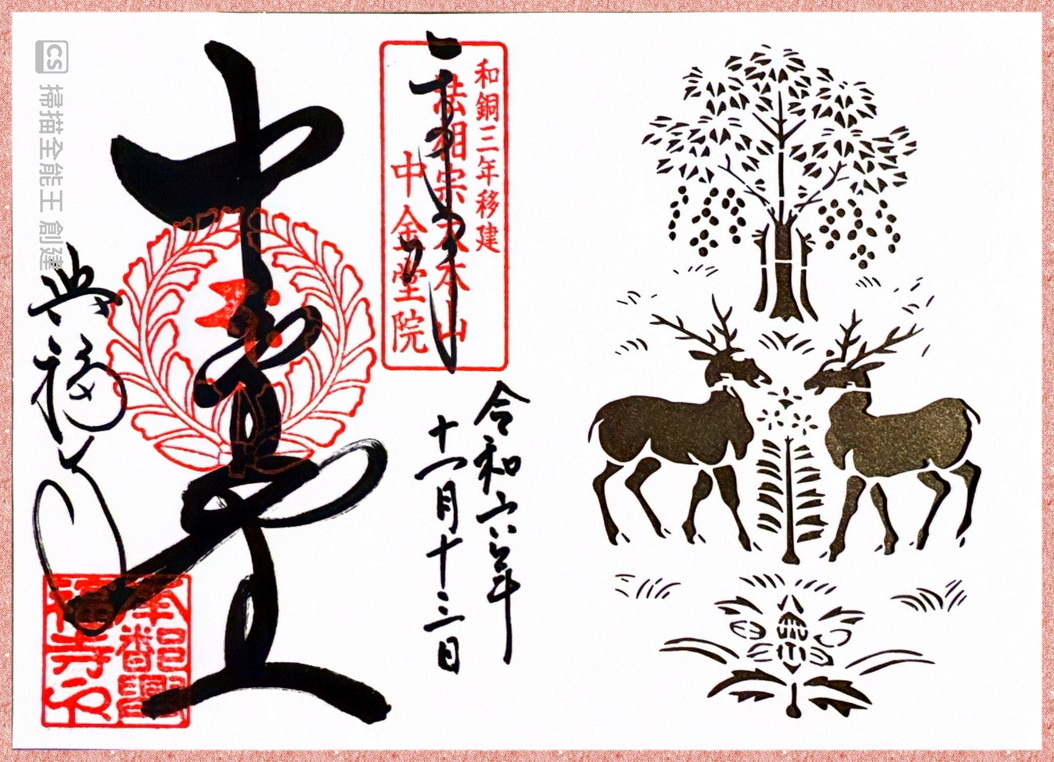 和銅三年移建
法相宗大本山
中金堂院
奉拝
令和六年
十一月十三日
中金堂
興福寺
南都興
福寺印
CS 掃描全能王 創建